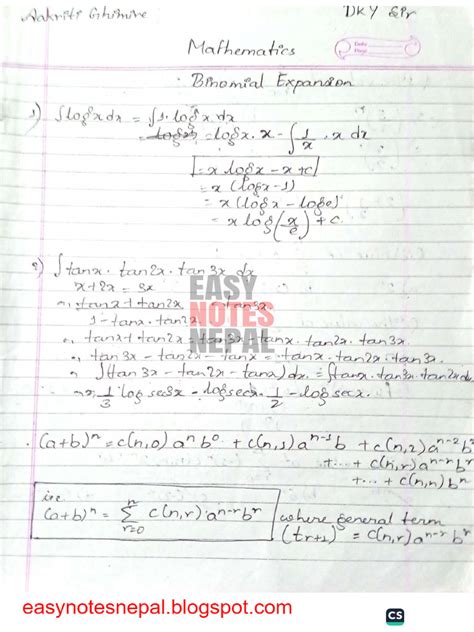 Aakriti Ghimire
DKY Sir
Mathematics
Date
Page
Binomial Expansion
1) ∫logx dx = ∫1. logx. dx
= logx. x - ∫ 1/x . x dx
= x logx - x + c
= x (logx - 1)
= x (logx - loge)
= x log(x/e) + c.
2) ∫tanx. tan2x. tan3x dx
x + 2x = 3x
EASY
NOTES
NEPAL
or, tanx + tan2x / 1 - tanx. tan2x = tan3x
or, tanx + tan2x = tan3x - tanx. tan2x. tan3x
or, tan3x - tan2x - tanx = tanx. tan2x. tan3x
or, ∫(tan3x - tan2x - tanx) dx. = ∫tanx. tan3x. tan2x dx
1/3 log sec3x - logsec2x. 1/2 - log secx.
(a+b)ⁿ = c(n,0) aⁿ b⁰ + c(n,1) aⁿ⁻¹ b + c(n,2) aⁿ⁻² b²
+... + c(n,r) aⁿ⁻ʳ bʳ
+... + c(n,n) bⁿ
i.e.
(a+b)ⁿ = Σ n r=0 c(n,r) aⁿ⁻ʳ bʳ
where general term
(tr+1) = c(n,r) aⁿ⁻ʳ bʳ
easynotesnepal.blogspot.com
CS